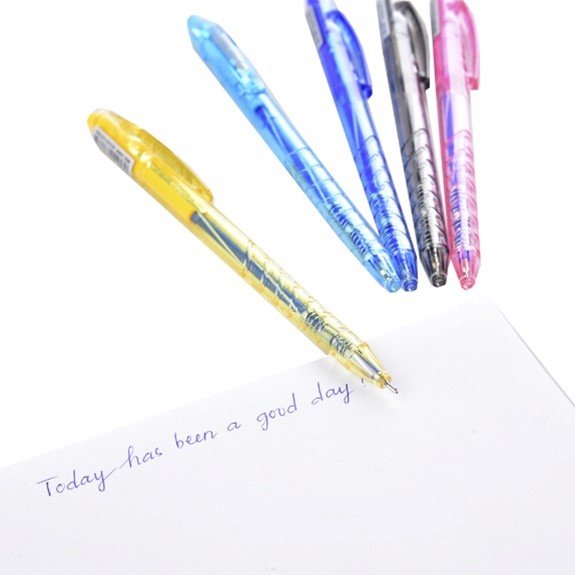 Today has been a good day!